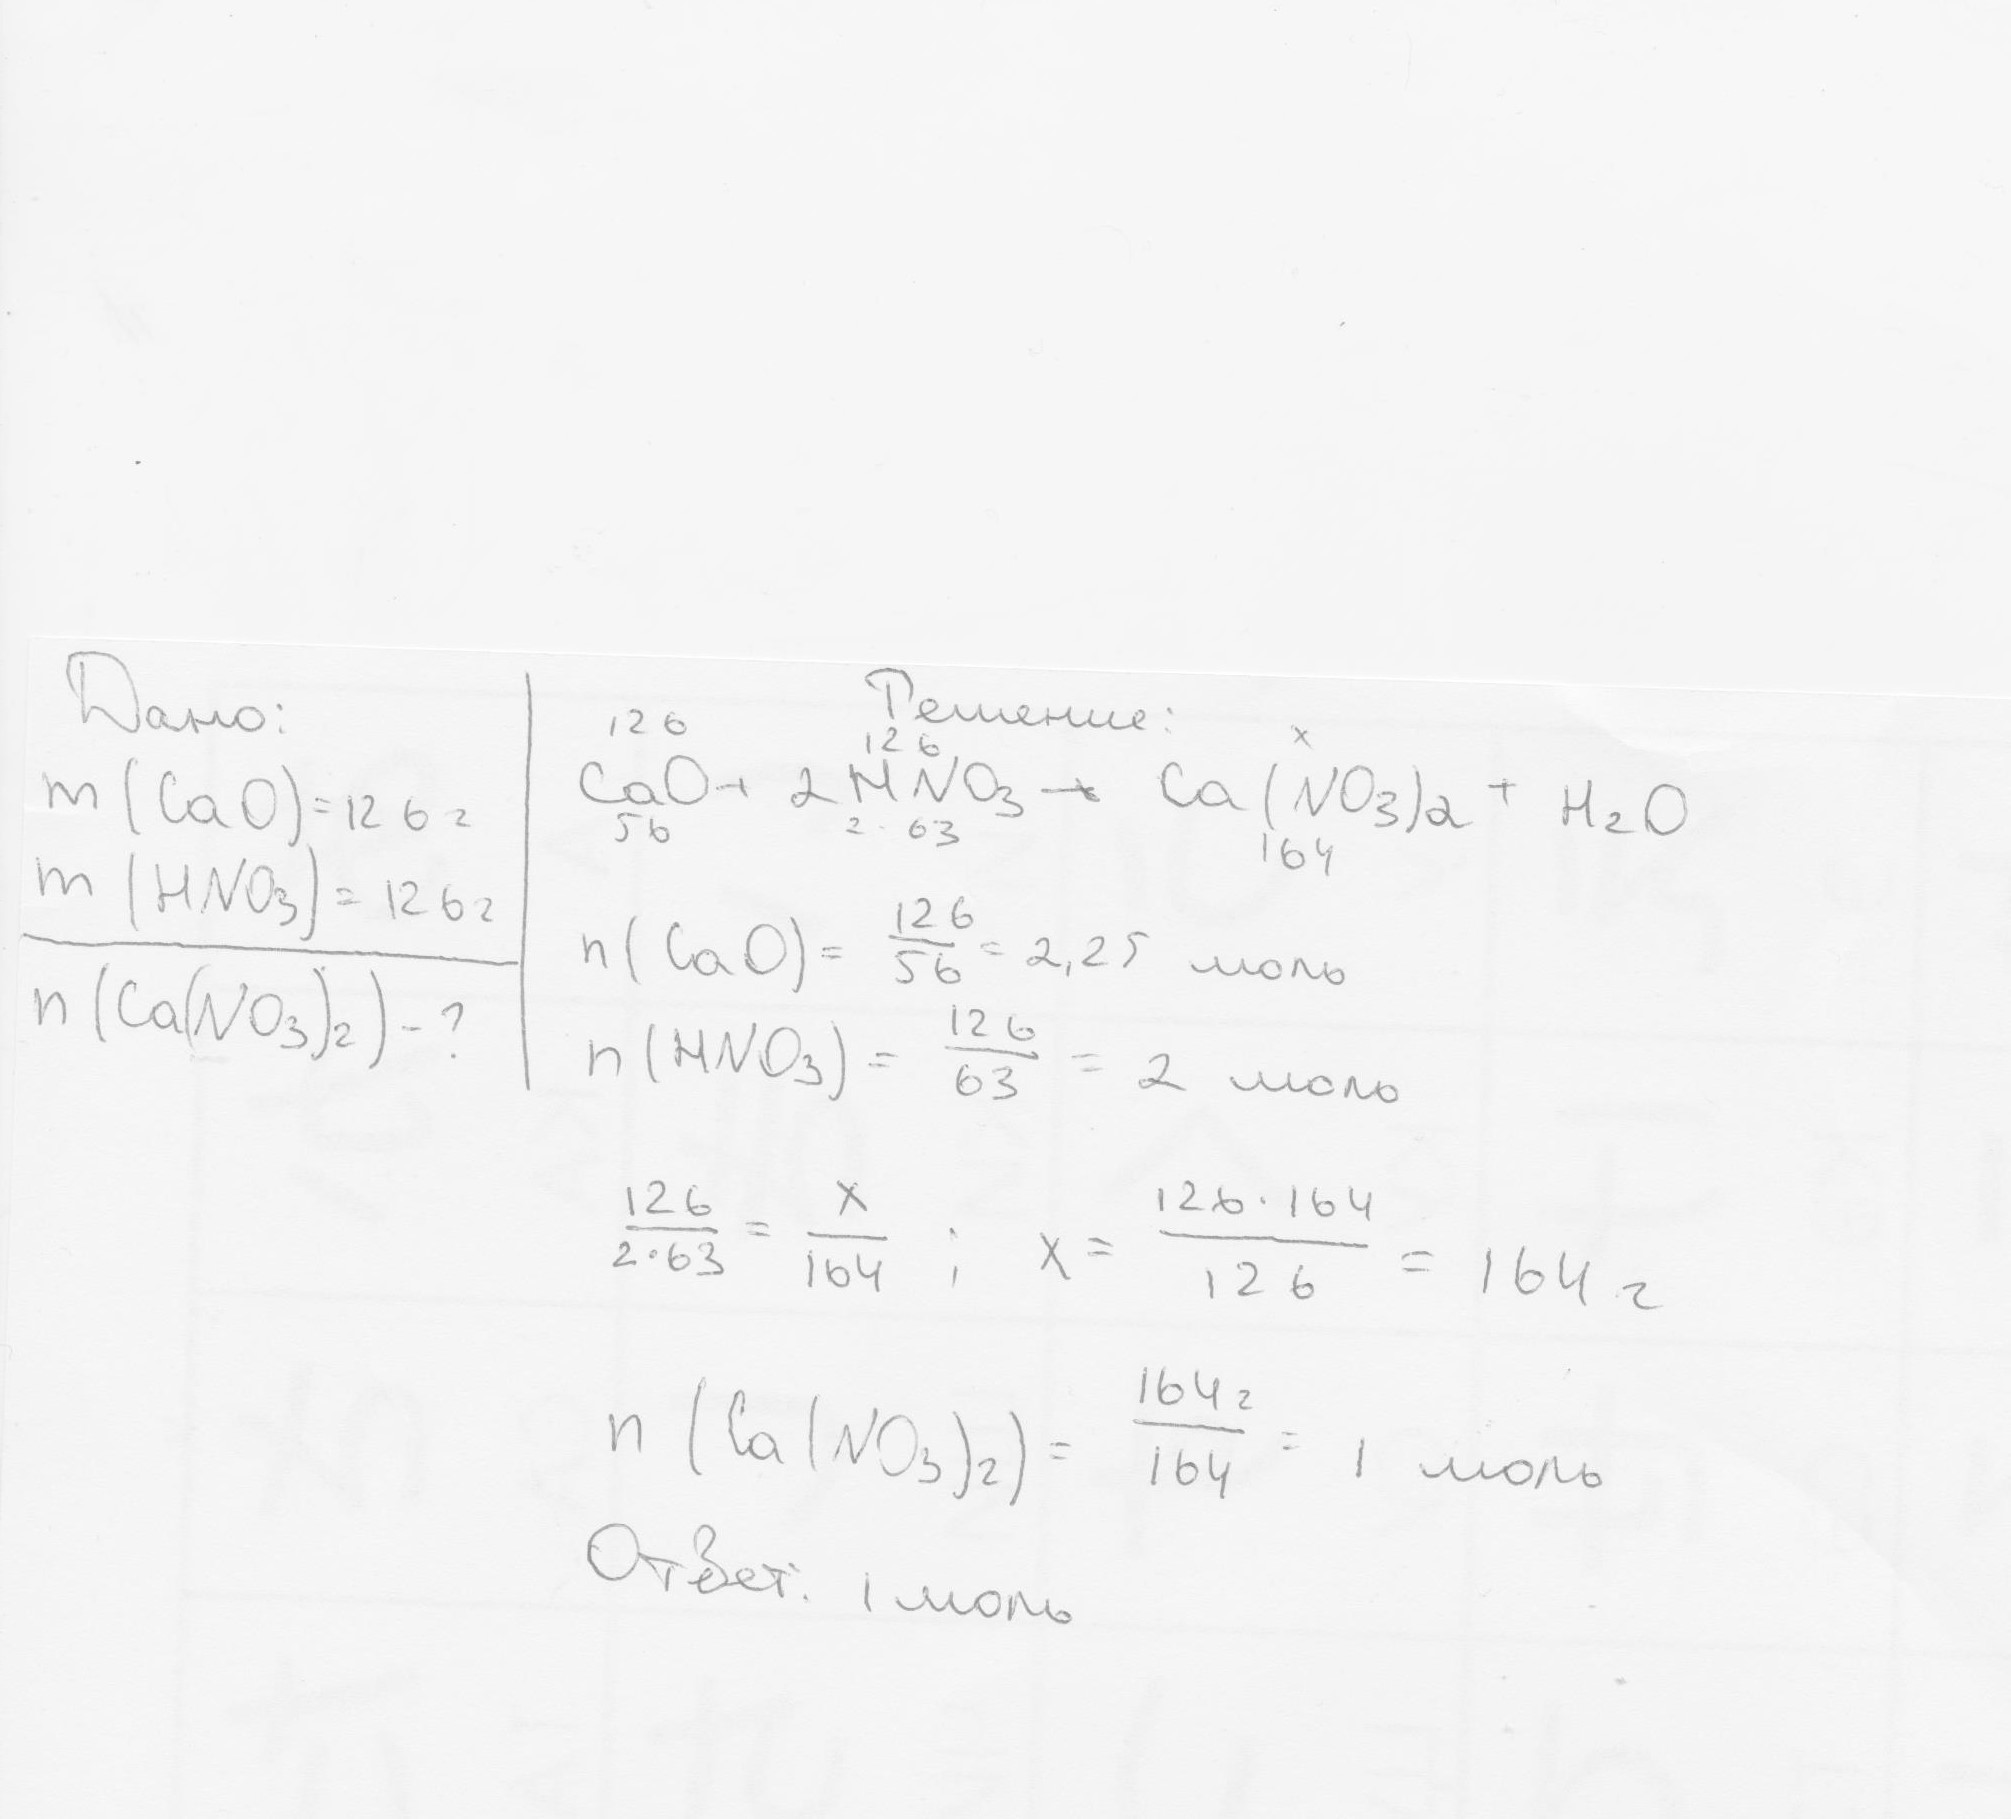 Дано:
m (CaO) = 126 г
m (HNO3) = 126 г
n (Ca(NO3)2) - ?
Решение:
126 126 x
CaO + 2HNO3 → Ca(NO3)2 + H2O
56 2·63 164
n (CaO) = 126/56 = 2,25 моль
n (HNO3) = 126/63 = 2 моль
126/2·63 = x/164 ; x = 126·164/126 = 164 г
n (Ca(NO3)2) = 164 г/164 = 1 моль
Ответ: 1 моль